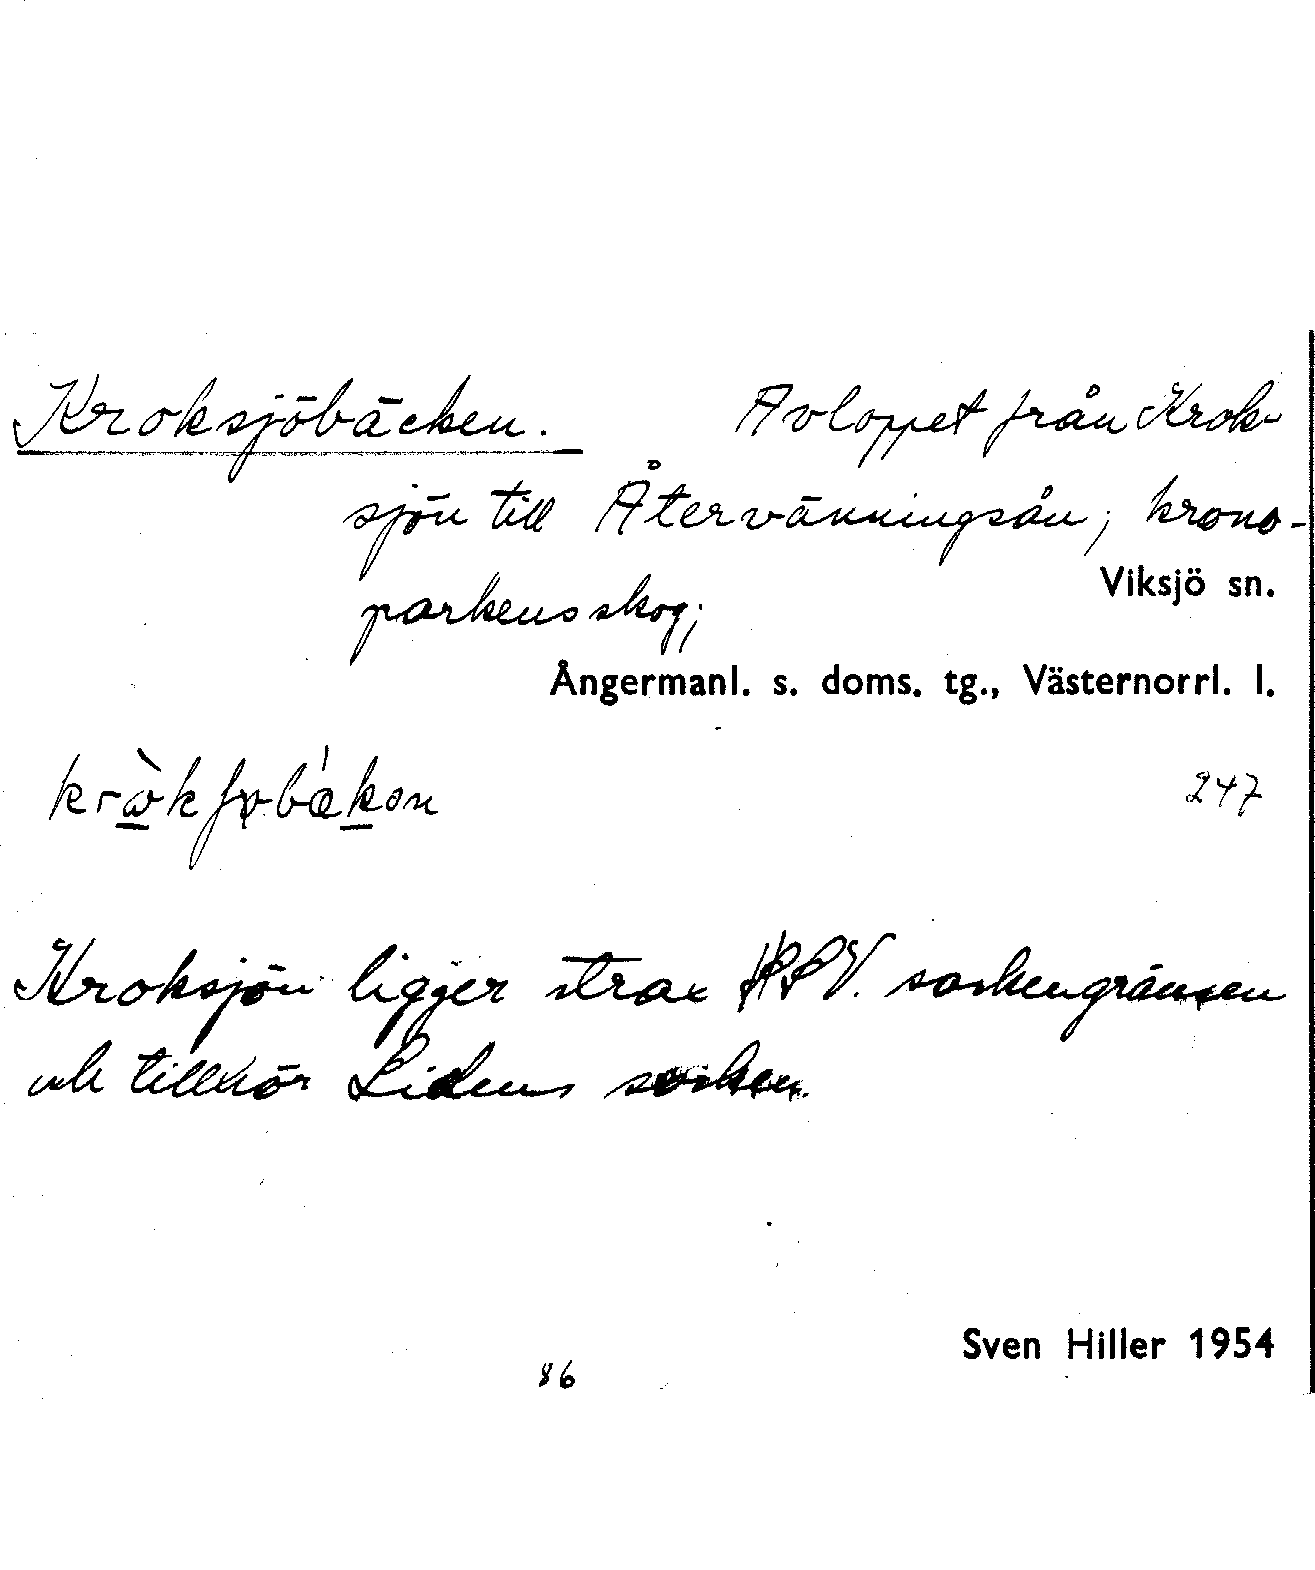 Kroksjöbäcken. Avloppet från Krok-
sjön till Återvänningsån; krono-
parkens skog; Viksjö sn.
Ångermanl. s. doms. tg., Västernorrl. l.
247
Kroksjön ligger strax V. sockengränsen
och tillhör Lidens socken.
Sven Hiller 1954
86